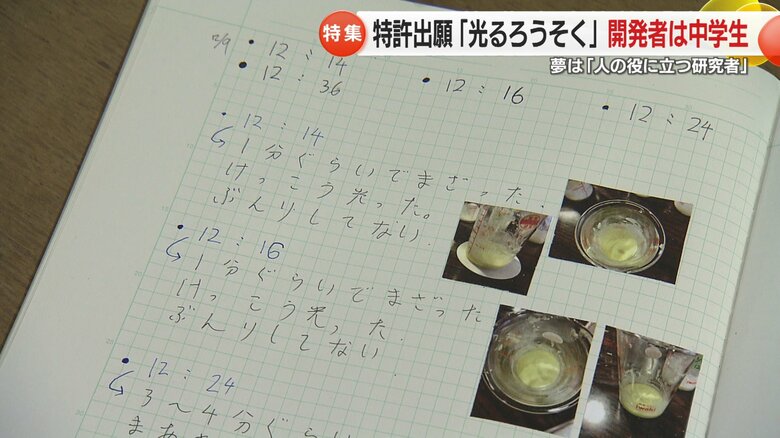 特集
特許出願「光るろうそく」 開発者は中学生
夢は「人の役に立つ研究者」
2/9
・12：14
・12：16
・12：24
・12：36
・12：14
↳1分ぐらいでまざった.
けっこう光った。
ぶんりしてない.
・12：16
↳1分ぐらいでまざった
けっこう光った.
ぶんりしてない
・12：24
↳3～4分ぐら
iwaki